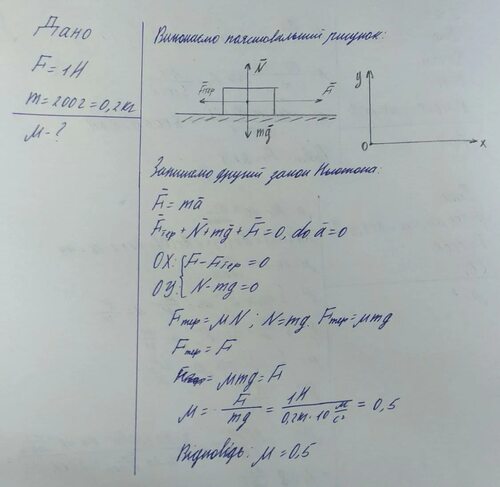 Дано
F = 1Н
m = 200г = 0,2кг
μ - ?
Виконаємо пояснювальний рисунок:
N
Fтер
F
mg
y
0
x
Запишемо другий закон Ньютона:
F = ma
Fтер + N + mg + F = 0, do a = 0
OX: F - Fтер = 0
OY: N - mg = 0
Fтер = μN; N = mg. Fтер = μmg
Fтер = F
μmg = F
μ = F/mg = 1Н/0,2кг·10 м/с² = 0,5
Відповідь: μ = 0,5